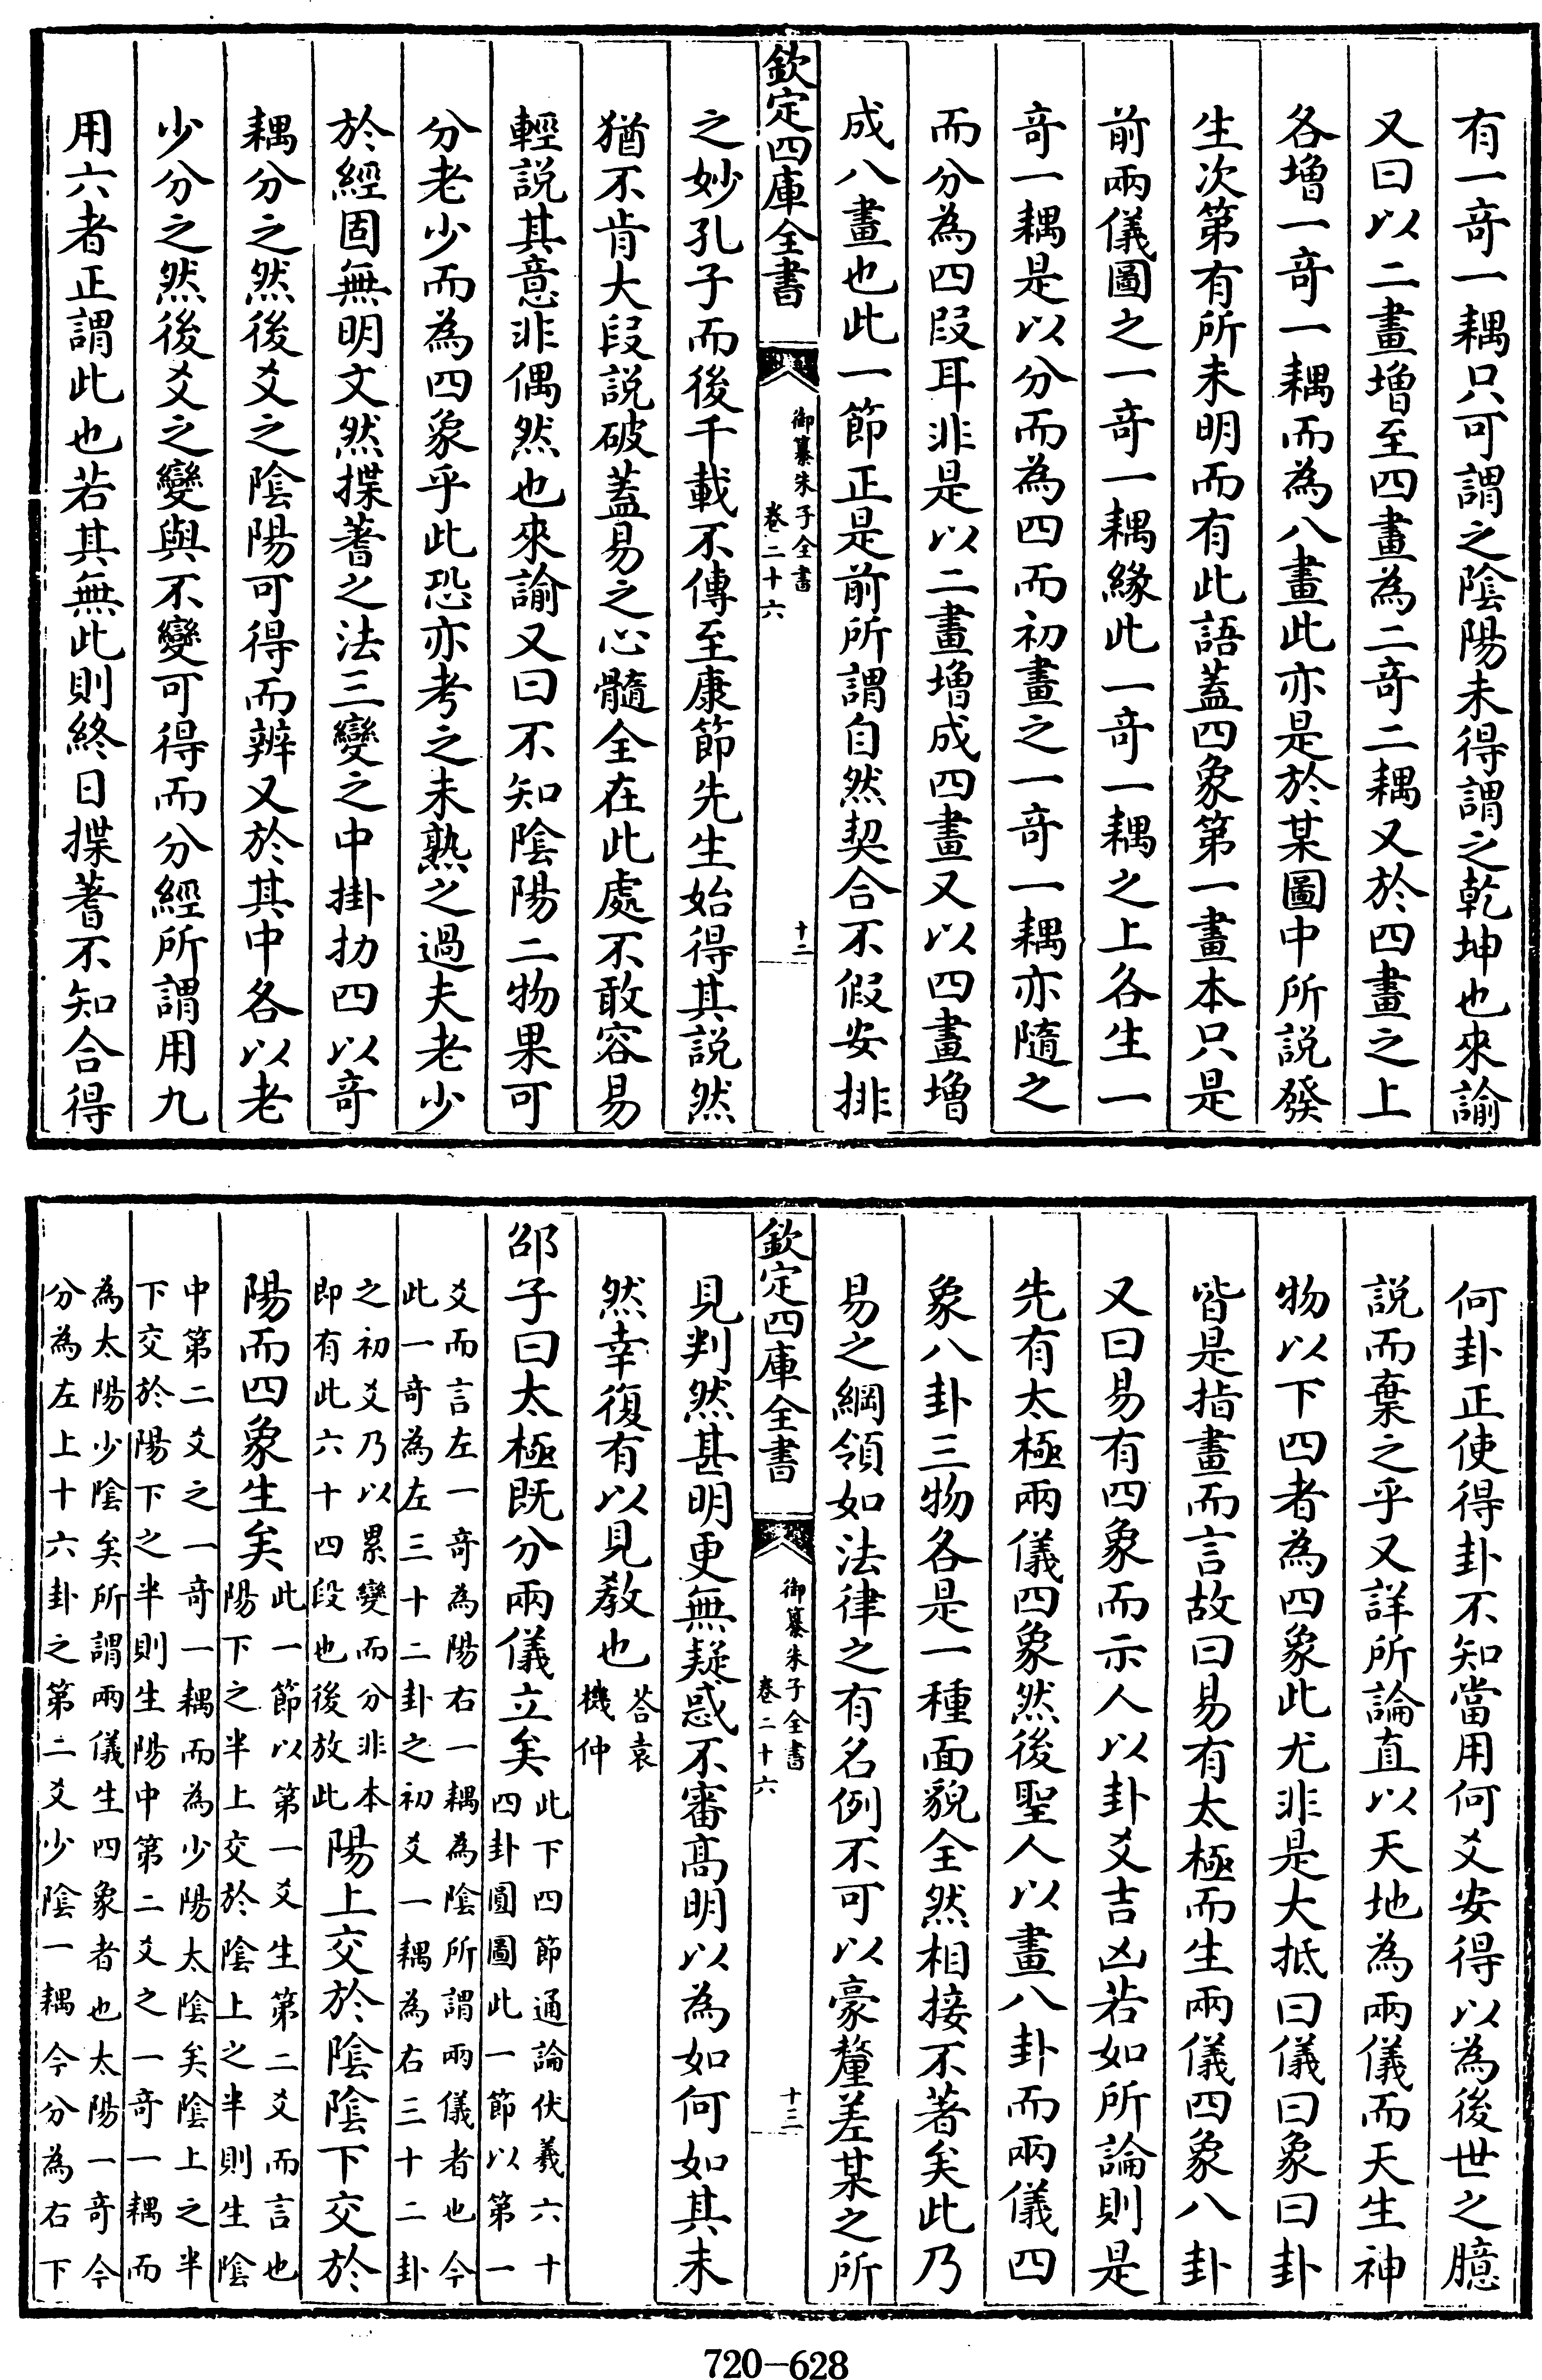 有一竒一耦只可謂之陰陽未得謂之乾坤也來諭
又曰以二畫増至四畫為二竒二耦又於四畫之上
各増一竒一耦而為八畫此亦是於某圖中所説發
生次第有所未明而有此語蓋四象第一畫本只是
前兩儀圖之一竒一耦縁此一竒一耦之上各生一
竒一耦是以分而為四而初畫之一竒一耦亦隨之
而分為四段耳非是以二畫増成四畫又以四畫増
成八畫也此一節正是前所謂自然契合不假安排
欽定四庫全書
御纂朱子全書
卷二十六
十二
之妙孔子而後千載不傳至康節先生始得其説然
猶不肯大段説破蓋易之心髓全在此處不敢容易
輕説其意非偶然也來諭又曰不知陰陽二物果可
分老少而為四象乎此恐亦考之未熟之過夫老少
於經固無明文然揲蓍之法三變之中掛扐四以竒
耦分之然後爻之陰陽可得而辨又於其中各以老
少分之然後爻之變與不變可得而分經所謂用九
用六者正謂此也若其無此則終日揲蓍不知合得
何卦正使得卦不知當用何爻安得以為後世之臆
説而棄之乎又詳所論直以天地為兩儀而天生神
物以下四者為四象此尤非是大抵曰儀曰象曰卦
皆是指畫而言故曰易有太極而生兩儀四象八卦
又曰易有四象而示人以卦爻吉凶若如所論則是
先有太極兩儀四象然後聖人以畫八卦而兩儀四
象八卦三物各是一種面貌全然相接不著矣此乃
易之綱領如法律之有名例不可以豪釐差某之所
欽定四庫全書
御纂朱子全書
卷二十六
十三
見判然甚明更無疑惑不審髙明以為如何如其未
然幸復有以見教也 荅袁機仲
邵子曰太極既分兩儀立矣 此下四節通論伏羲六十四卦圓圖此一節以第一
爻而言左一竒為陽右一耦為陰所謂兩儀者也今此一竒為左三十二卦之初爻一耦為右三十二卦
之初爻乃以累變而分非本即有此六十四段也後放此 陽上交於陰陰下交於
陽而四象生矣 此一節以第一爻生第二爻而言也陽下之半上交於陰上之半則生陰
中第二爻之一竒一耦而為少陽太陰矣陰上之半下交於陽下之半則生陽中第二爻之一竒一耦而
為太陽少陰矣所謂兩儀生四象者也太陽一竒今分為左上十六卦之第二爻少陰一耦今分為右下
720-628